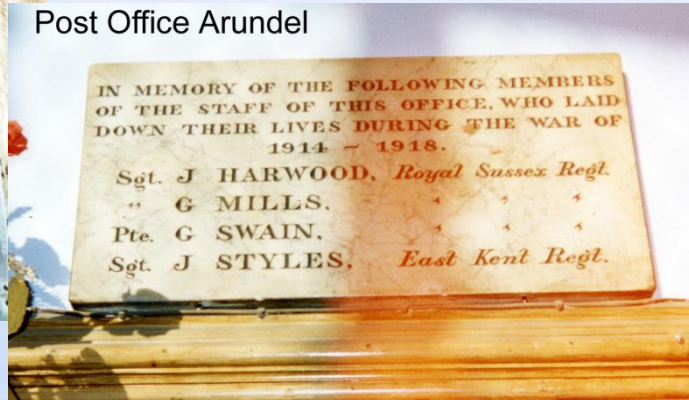 Post Office Arundel
IN MEMORY OF THE FOLLOWING MEMBERS
OF THE STAFF OF THIS OFFICE, WHO LAID
DOWN THEIR LIVES DURING THE WAR OF
1914 ~ 1918.
Sgt. J HARWOOD, Royal Sussex Regt.
" G MILLS, " " "
Pte. G SWAIN, " " "
Sgt. J STYLES, East Kent Regt.